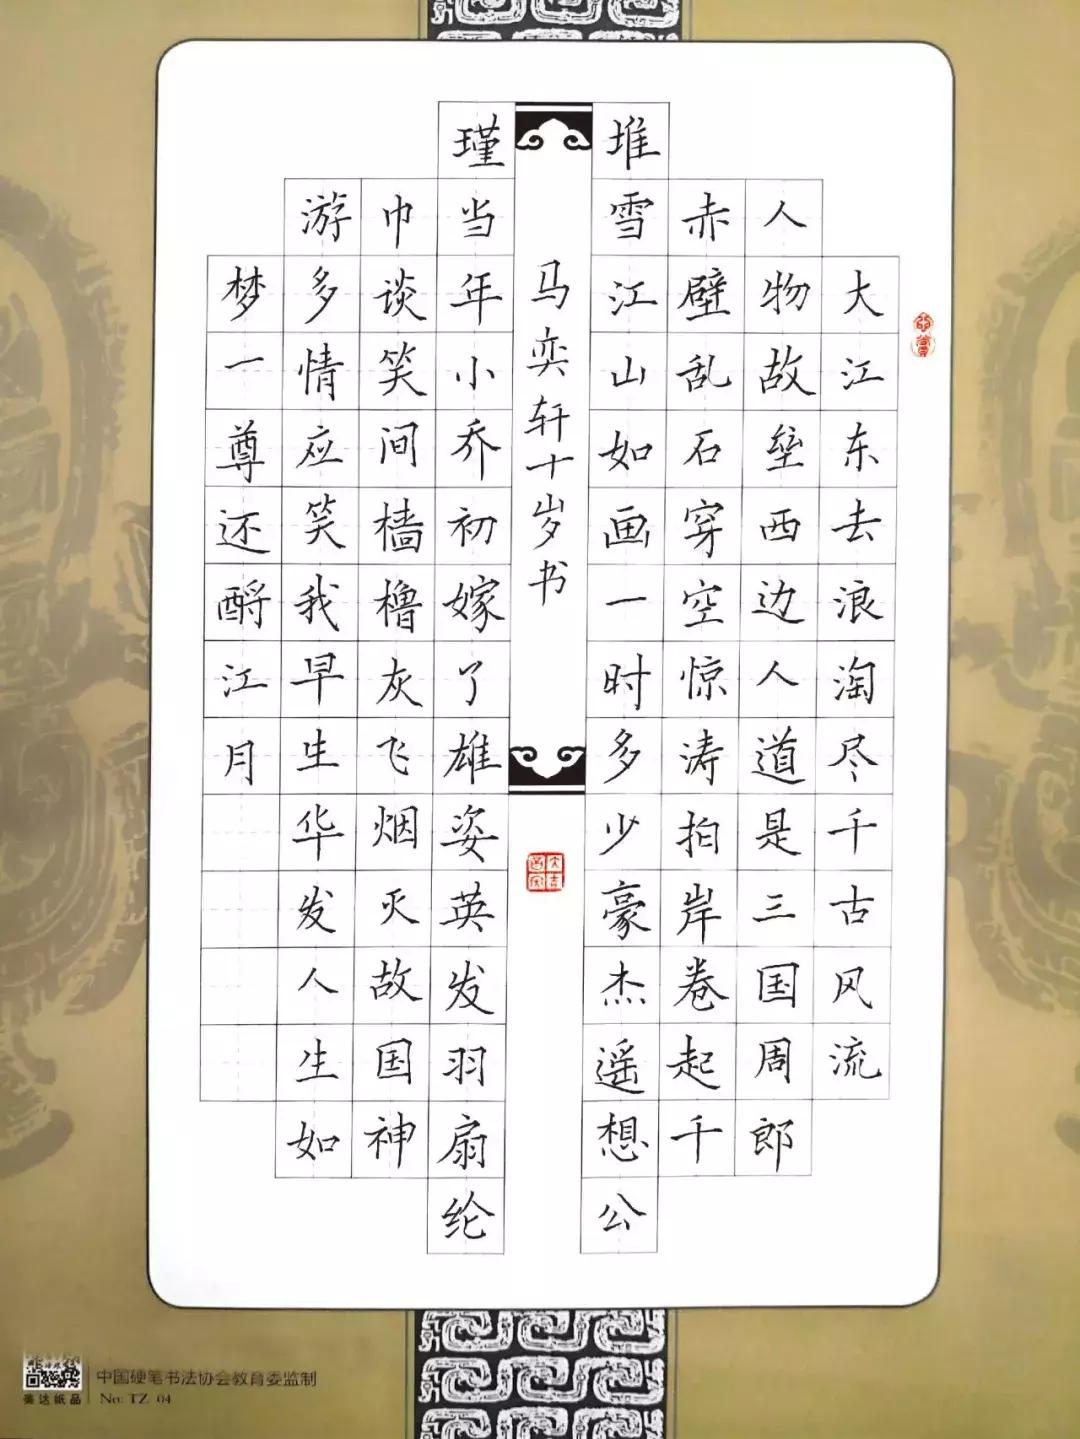 大江东去浪淘尽千古风流
人物故垒西边人道是三国周郎
赤壁乱石穿空惊涛拍岸卷起千
堆雪江山如画一时多少豪杰遥想公
瑾当年小乔初嫁了雄姿英发羽扇纶
巾谈笑间樯橹灰飞烟灭故国神
游多情应笑我早生华发人生如
梦一尊还酹江月
马奕轩十岁书
美达纸品
中国硬笔书法协会教育委监制
No: TZ 04